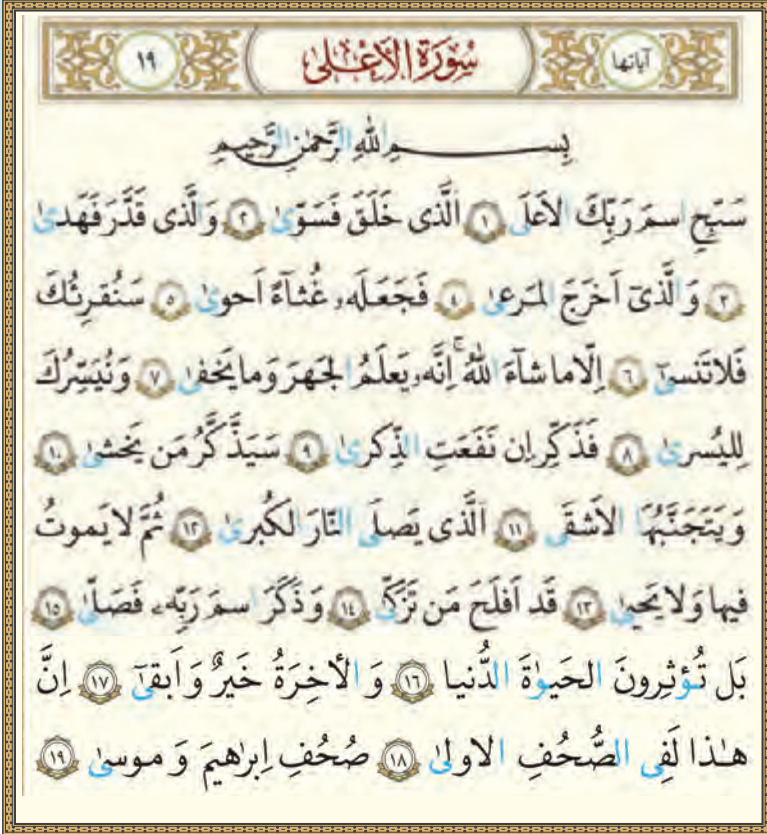 آیاتها سُورَةُ الأَعْلىٰ ١٩
بِسمِ اللّٰهِ الرَّحمٰنِ الرَّحیمِ
سَبِّحِ اسمَ رَبِّكَ الاَعلَی ١ اَلَّذی خَلَقَ فَسَوّیٰ ٢ وَ الَّذی قَدَّرَ فَهَدیٰ
٣ وَ الَّذیٓ اَخرَجَ المَرعیٰ ٤ فَجَعَلَهو غُثآءً اَحویٰ ٥ سَنُقرِئُكَ
فَلا تَنسیٰٓ ٦ اِلّا ما شآءَ اللّٰهُ ۚ اِنَّهو یَعلَمُ الجَهرَ وَ ما یَخفیٰ ٧ وَ نُیَسِّرُكَ
لِلیُسریٰ ٨ فَذَكِّر اِن نَفَعَتِ الذِّكریٰ ٩ سَیَذَّكَّرُ مَن یَخشیٰ ١٠
وَ یَتَجَنَّبُهَا الاَشقَی ١١ اَلَّذی یَصلَی النّارَ الكُبریٰ ١٢ ثُمَّ لا یَموتُ
فیها وَ لا یَحییٰ ١٣ قَد اَفلَحَ مَن تَزَكّیٰ ١٤ وَ ذَكَرَ اسمَ رَبِّهے فَصَلّیٰ ١٥
بَل تُؤثِرونَ الحَیوٰةَ الدُّنیا ١٦ وَ الأخِرَةُ خَیرٌ وَ اَبقیٰٓ ١٧ اِنَّ
هـٰذا لَفِی الصُّحُفِ الاولیٰ ١٨ صُحُفِ اِبرٰهیمَ وَ موسیٰ ١٩